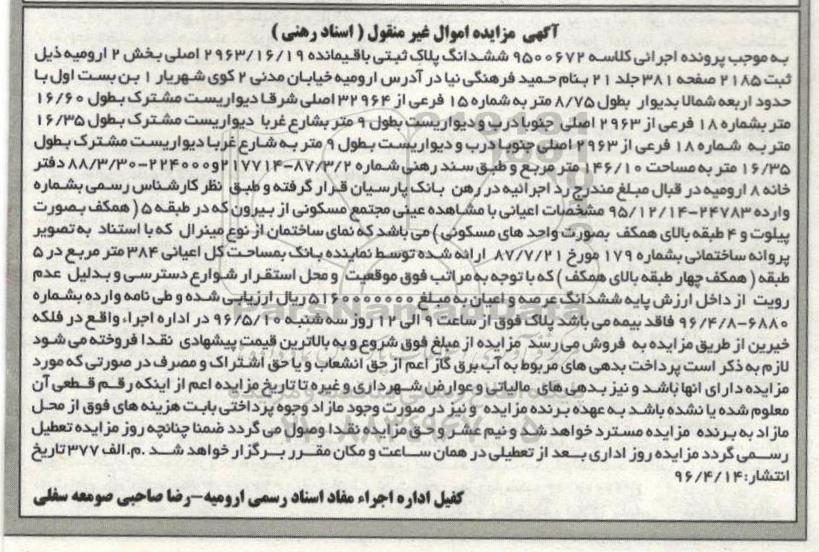 آگهی مزایده اموال غیر منقول ( اسناد رهنی )
به موجب پرونده اجرائی کلاسه ۹۵۰۰۶۷۲ ششدانگ پلاک ثبتی باقیمانده ۲۹۶۳/۱۶/۱۹ اصلی بخش ۲ ارومیه ذیل
ثبت ۲۱۸۵ صفحه ۳۸۱ جلد ۲۱ بنام حمید فرهنگی نیا در آدرس ارومیه خیابان مدنی ۲ کوی شهریار ۱ بن بست اول با
حدود اربعه شمالا بدیوار بطول ۸/۷۵ متر به شماره ۱۵ فرعی از ۳۲۹۶۴ اصلی شرقا دیواریست مشترک بطول ۱۶/۶۰
متر بشماره ۱۸ فرعی از ۲۹۶۳ اصلی جنوبا درب و دیواریست بطول ۹ متر بشارع غربا دیواریست مشترک بطول ۱۶/۳۵
متر به شماره ۱۸ فرعی از ۲۹۶۳ اصلی جنوبا درب و دیواریست بطول ۹ متر به شارع غربا دیواریست مشترک بطول
۱۶/۳۵ متر به مساحت ۱۴۶/۱۰ متر مربع و طبق سند رهنی شماره ۸۷/۳/۲-۲۱۷۷۱۴و ۲۲۴۰۰۰-۸۸/۳/۳۰ دفتر
خانه ۸ ارومیه در قبال مبلغ مندرج رد اجرائیه در رهن بانک پارسیان قرار گرفته و طبق نظر کارشناس رسمی بشماره
وارده ۲۴۷۸۳-۹۵/۱۲/۱۴ مشخصات اعیانی با مشاهده عینی مجتمع مسکونی از بیرون که در طبقه ۵ ( همکف بصورت
پیلوت و ۴ طبقه بالای همکف بصورت واحد های مسکونی ) می باشد که نمای ساختمان از نوع مینرال که با استناد به تصویر
پروانه ساختمانی بشماره ۱۷۹ مورخ ۸۷/۷/۲۱ ارائه شده توسط نماینده بانک بمساحت کل اعیانی ۳۸۴ متر مربع در ۵
طبقه ( همکف چهار طبقه بالای همکف ) که با توجه به مراتب فوق موقعیت و محل استقرار شوارع دسترسی و بدلیل عدم
رویت از داخل ارزش پایه ششدانگ عرصه و اعیان به مبلغ ۵۱۶۰۰۰۰۰۰۰ ریال ارزیابی شده و طی نامه وارده بشماره
۶۸۸۰-۹۶/۴/۸ فاقد بیمه می باشد پلاک فوق از ساعت ۹ الی ۱۲ روز سه شنبه ۹۶/۵/۱۰ در اداره اجراء واقع در فلکه
خیرین از طریق مزایده به فروش می رسد مزایده از مبلغ فوق شروع و به بالاترین قیمت پیشنهادی نقدا فروخته می شود
لازم به ذکر است پرداخت بدهی های مربوط به آب برق گاز اعم از حق انشعاب و یا حق اشتراک و مصرف در صورتی که مورد
مزایده دارای انها باشد و نیز بدهی های مالیاتی و عوارض شهرداری و غیره تا تاریخ مزایده اعم از اینکه رقم قطعی آن
معلوم شده یا نشده باشد به عهده برنده مزایده و نیز در صورت وجود مازاد وجوه پرداختی بابت هزینه های فوق از محل
مازاد به برنده مزایده مسترد خواهد شد و نیم عشر و حق مزایده نقدا وصول می گردد ضمنا چنانچه روز مزایده تعطیل
رسمی گردد مزایده روز اداری بعد از تعطیلی در همان ساعت و مکان مقرر برگزار خواهد شد .م.الف ۳۷۷ تاریخ
انتشار:۹۶/۴/۱۴
کفیل اداره اجراء مفاد اسناد رسمی ارومیه-رضا صاحبی صومعه سفلی